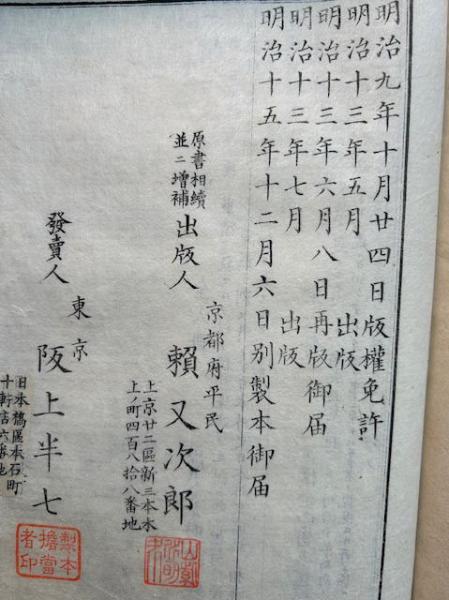 明治九年十月廿四日版權免許
明治十三年五月 出版
明治十三年六月八日再版御届
明治十三年七月 出版
明治十五年十二月六日別製本御届
原書相續
並ニ増補
出版人
京都府平民
頼又次郎
上京廿二區新三本木
上ノ町四百八拾八番地
發賣人
東京
阪上半七
日本橋區本石町
十軒店六番地
製本
擔當
者印